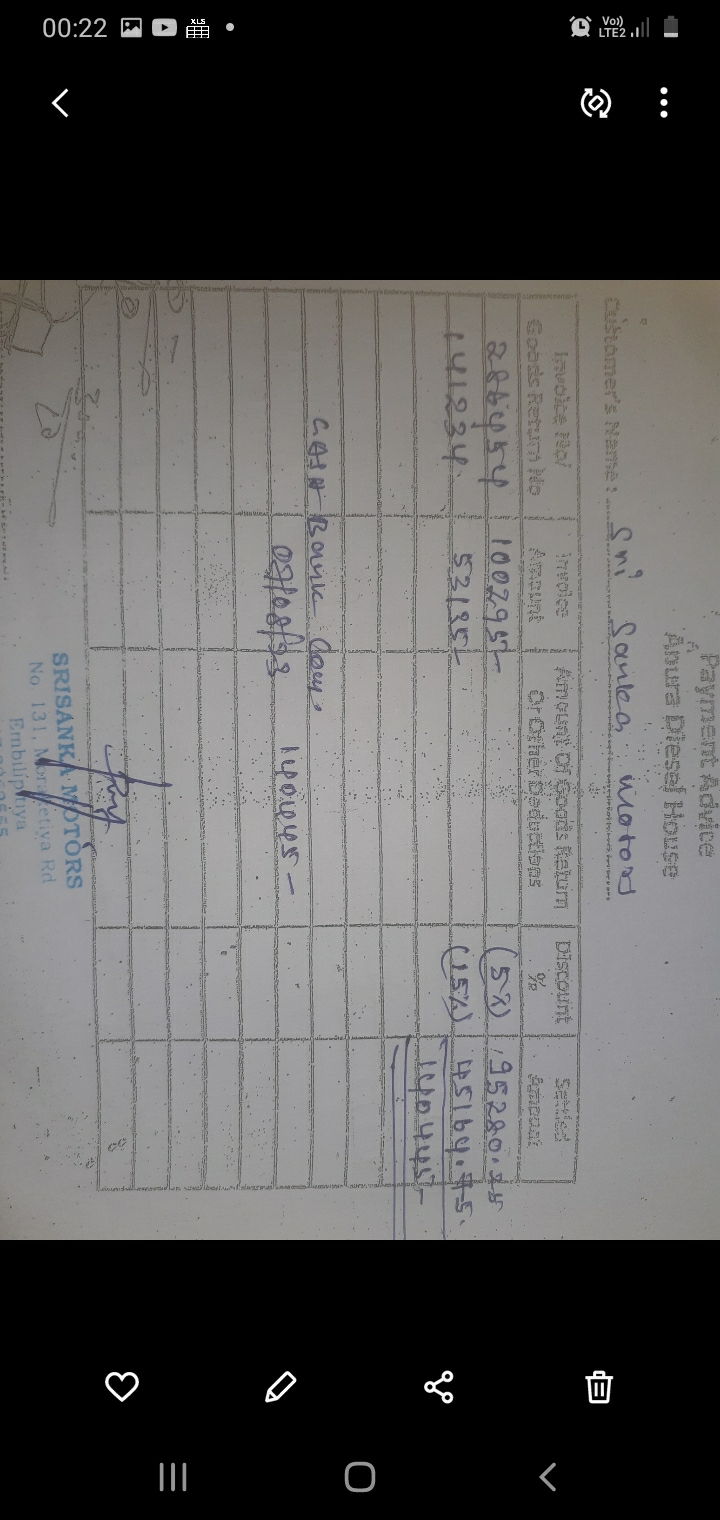 00:22
XLS
Vo)) LTE2
Payment Advice
Anura Diesel House
Customer's Name: Sri Sanka Motors
Invoice No/ Goods Return No Invoice Amount Amount Of Goods Return Or Other Deductions Discount % Settled Amount
286454 100295/- (5%) 95280.25
141234 53135/- (15%) 45164.75
140445/-
Bank
03/08/23 140445/-
SRISANKA MOTORS
No 131, Rd
Embilipitiya